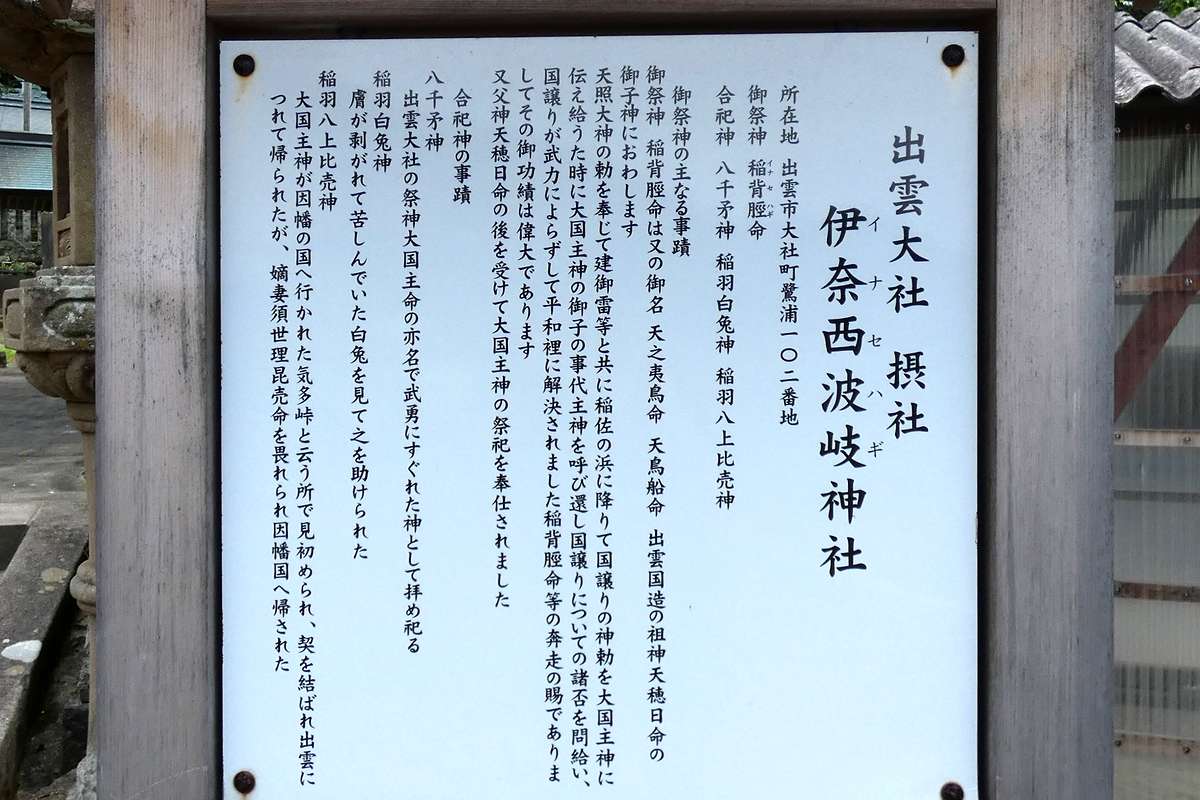 出雲大社 摂社
伊奈西波岐神社
イナセハギ
所在地 出雲市大社町鷺浦一〇二番地
御祭神 稲背脛命
イナセハギ
合祀神 八千矛神 稲羽白兔神 稲羽八上比売神
御祭神の主なる事蹟
御祭神 稲背脛命は又の御名 天之夷鳥命 天鳥船命 出雲国造の祖神天穂日命の
御子神におわします
天照大神の勅を奉じて建御雷等と共に稲佐の浜に降りて国譲りの神勅を大国主神に
伝え給うた時に大国主神の御子の事代主神を呼び還し国譲りについての諸否を問給い、
国譲りが武力によらずして平和裡に解決されました稲背脛命等の奔走の賜でありま
してその御功績は偉大であります
又父神天穂日命の後を受けて大国主神の祭祀を奉仕されました
合祀神の事蹟
八千矛神
出雲大社の祭神大国主命の亦名で武勇にすぐれた神として拝め祀る
稲羽白兔神
膚が剥がれて苦しんでいた白兔を見て之を助けられた
稲羽八上比売神
大国主神が因幡の国へ行かれた気多峠と云う所で見初められ、契を結ばれ出雲に
つれて帰られたが、嫡妻須世理昆売命を畏れられ因幡国へ帰された